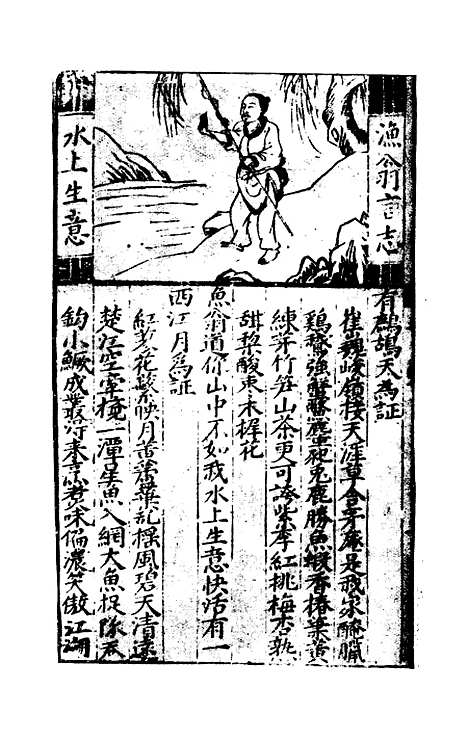 漁翁言志
水上生意
有鷓鴣天為証
崔巍峻嶺接天涯草舍茅庵是我家醃臘
鷄鵝強蟹鱉麞䝙兔鹿勝魚蝦香椿葉黃
練芽竹笋山茶更可誇紫李紅桃梅杏熟
甜梨酸枣木樨花
魚翁道你山中不如我水上生意快活有一
西江月為証
紅蓼花繁映月黃蘆葉乱搖風碧天清遠
楚江空牽挽一潭星魚入網大魚捉隊吞
鈎小鱖成叢得來烹煮味偏濃笑傲江湖